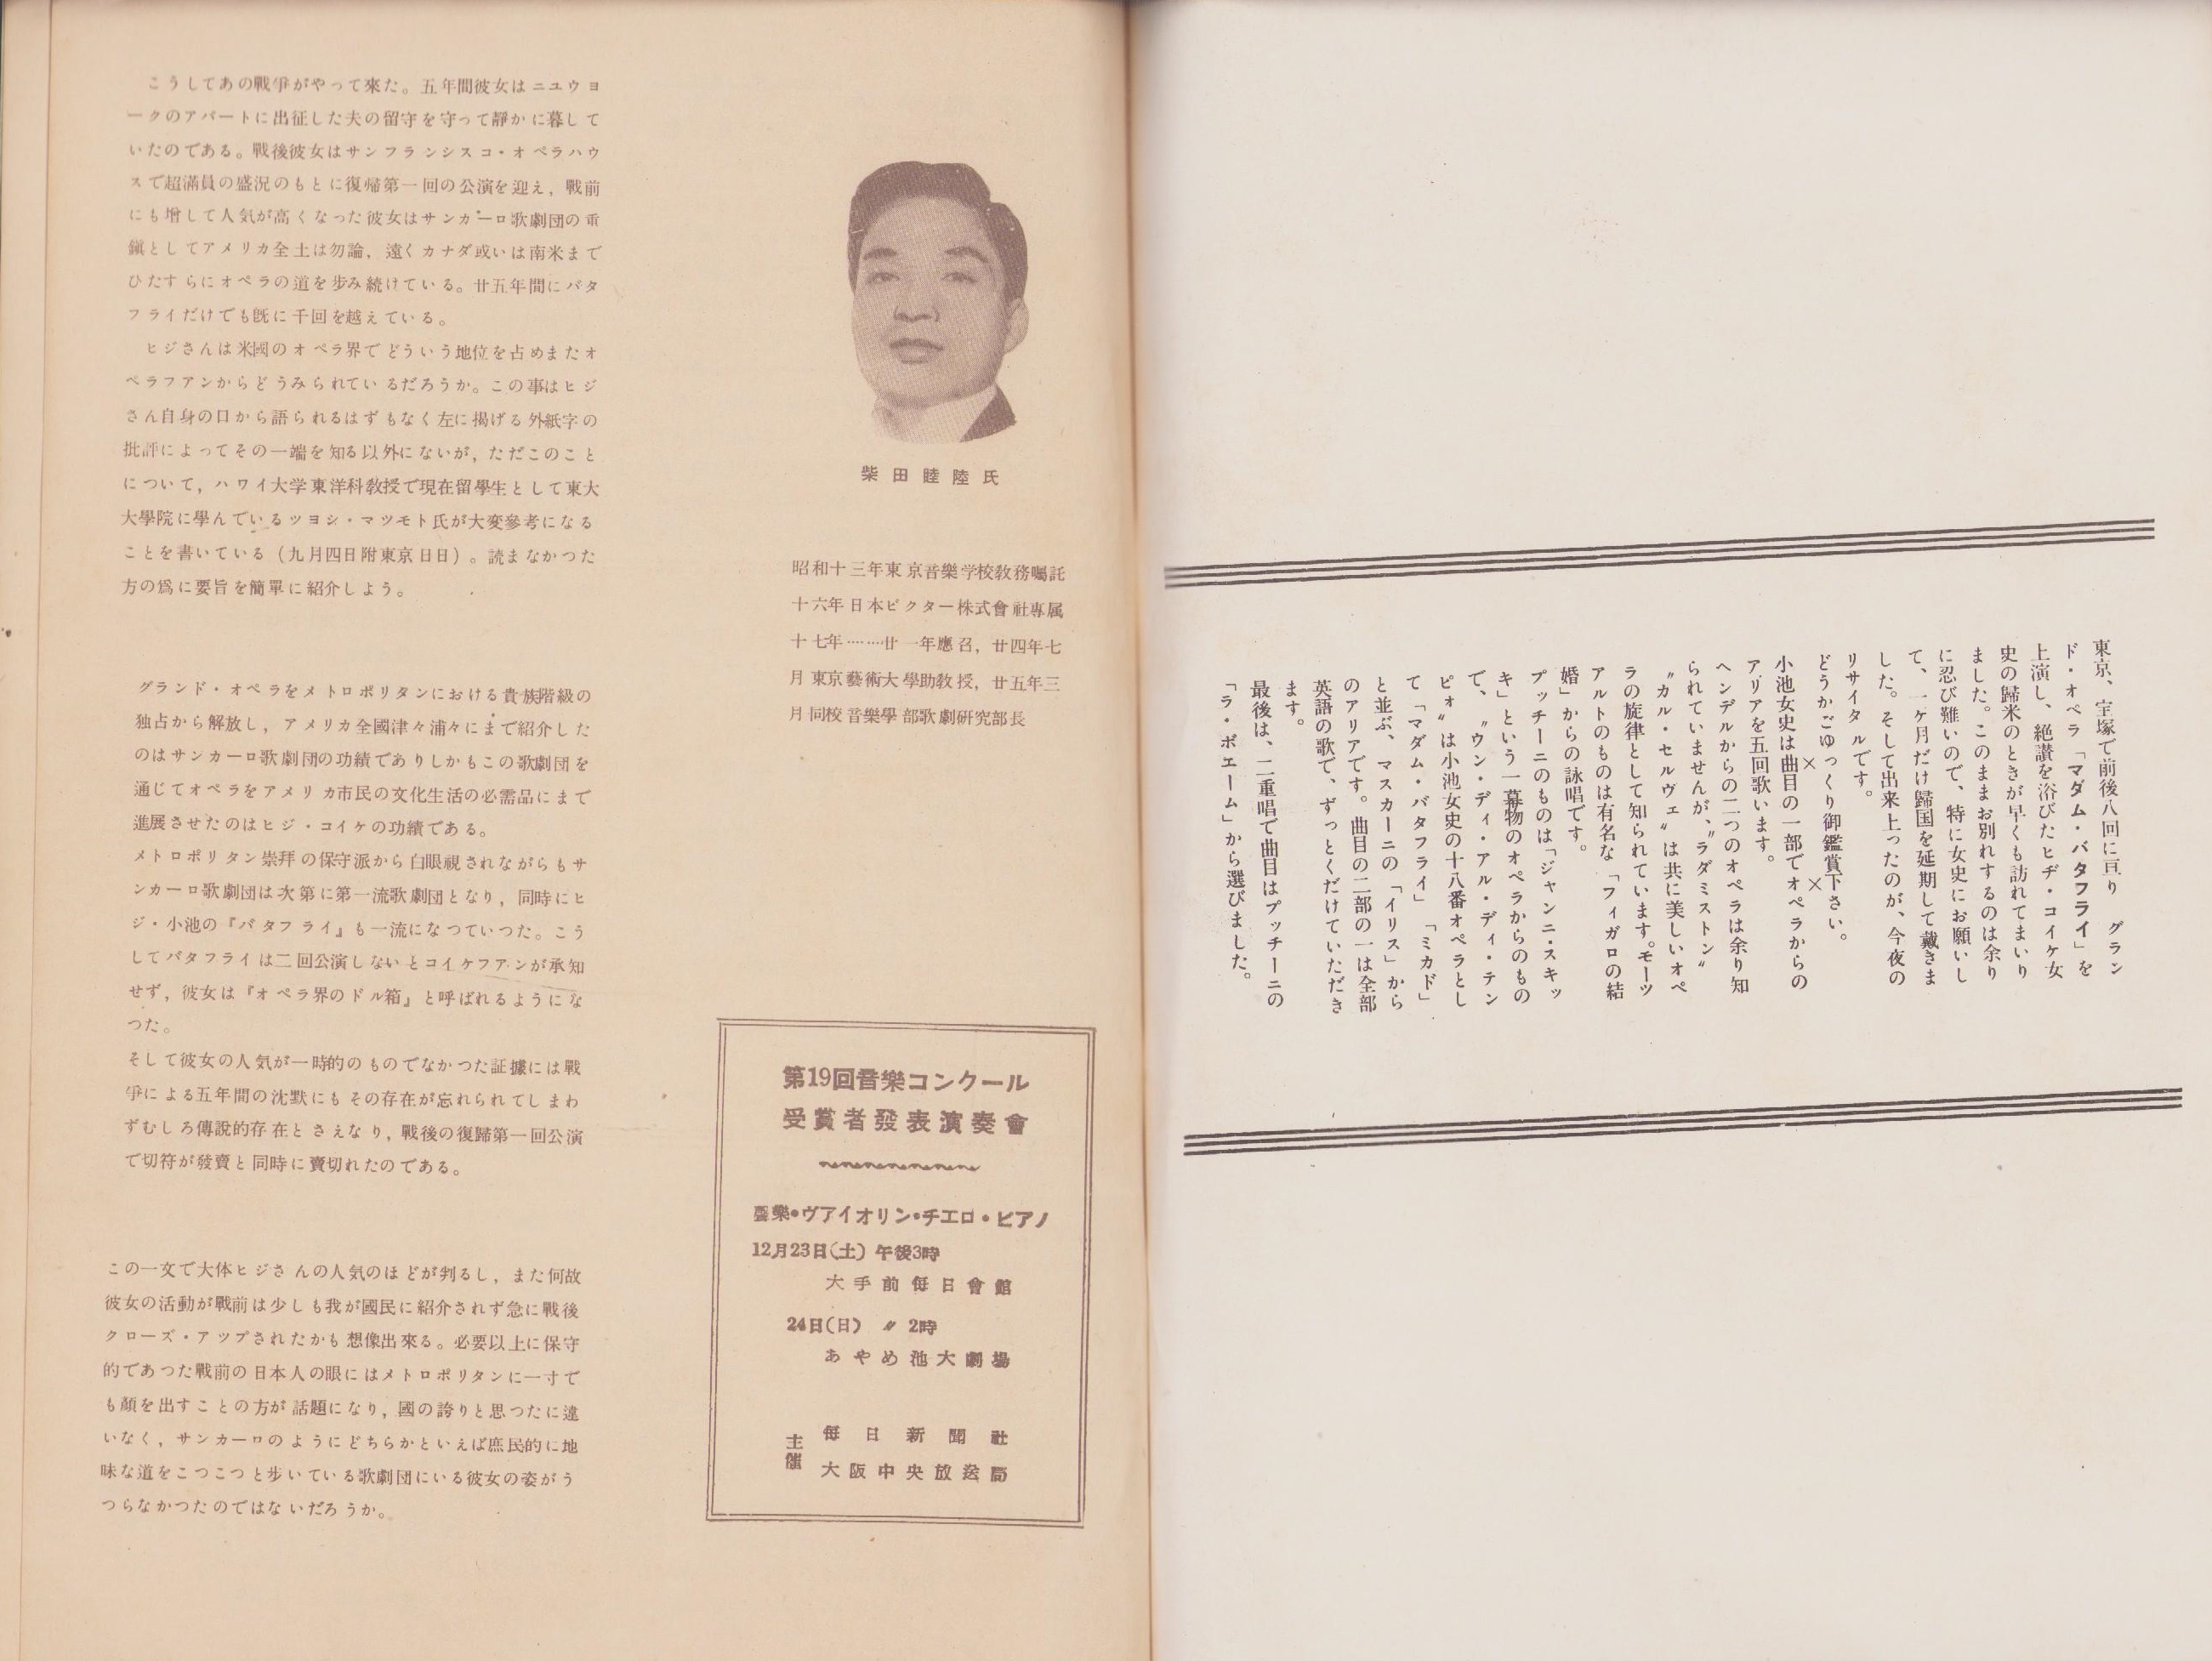 こうしてあの戰爭がやって來た。五年間彼女はニユウヨ
ークのアパートに出征した夫の留守を守って靜かに暮して
いたのである。戰後彼女はサンフランシスコ・オペラハウ
スで超滿員の盛況のもとに復帰第一回の公演を迎え，戰前
にも増して人気が高くなった彼女はサンカーロ歌劇団の重
鎭としてアメリカ全土は勿論，遠くカナダ或いは南米まで
ひたすらにオペラの道を歩み続けている。廿五年間にバタ
フライだけでも既に千回を越えている。
ヒジさんは米國のオペラ界でどういう地位を占めまたオ
ペラフアンからどうみられているだろうか。この事はヒジ
さん自身の口から語られるはずもなく左に掲げる外紙字の
批評によってその一端を知る以外にないが，ただこのこと
について，ハワイ大学東洋科教授で現在留學生として東大
大學院に學んでいるツヨシ・マツモト氏が大変參考になる
ことを書いている（九月四日附東京日日）。読まなかつた
方の爲に要旨を簡單に紹介しよう。
グランド・オペラをメトロポリタンにおける貴族階級の
独占から解放し，アメリカ全國津々浦々にまで紹介した
のはサンカーロ歌劇団の功績でありしかもこの歌劇団を
通じてオペラをアメリカ市民の文化生活の必需品にまで
進展させたのはヒジ・コイケの功績である。
メトロポリタン崇拜の保守派から白眼視されながらもサ
ンカーロ歌劇団は次第に第一流歌劇団となり，同時にヒ
ジ・小池の『バタフライ』も一流になつていつた。こう
してバタフライは二回公演しないとコイケフアンが承知
せず，彼女は『オペラ界のドル箱』と呼ばれるようにな
つた。
そして彼女の人気が一時的のものでなかつた証據には戰
爭による五年間の沈默にもその存在が忘れられてしまわ
ずむしろ傳說的存在とさえなり，戰後の復歸第一回公演
で切符が發賣と同時に賣切れたのである。
この一文で大体ヒジさんの人気のほどが判るし，また何故
彼女の活動が戰前は少しも我が國民に紹介されず急に戰後
クローズ・アツプされたかも想像出來る。必要以上に保守
的であつた戰前の日本人の眼にはメトロポリタンに一寸で
も顏を出すことの方が話題になり，國の誇りと思つたに違
いなく，サンカーロのようにどちらかといえば庶民的に地
味な道をこつこつと歩いている歌劇団にいる彼女の姿がう
つらなかつたのではないだろうか。
柴田睦陸氏
昭和十三年東京音樂学校敎務囑託
十六年日本ビクター株式會社專属
十七年………廿一年應召，廿四年七
月東京藝術大學助敎授，廿五年三
月同校音樂學部歌劇研究部長
第19回音樂コンクール
受賞者發表演奏會
聲樂・ヴアイオリン・チエロ・ピアノ
12月23日（土）午後3時
大手前每日會館
24日（日）〃2時
あやめ池大劇場
主催
每日新聞社
大阪中央放送局
東京、宝塚で前後八回に亘り　グラン
ド・オペラ「マダム・バタフライ」を
上演し、絶讃を浴びたヒヂ・コイケ女
史の歸米のときが早くも訪れてまいり
ました。このままお別れするのは余り
に忍び難いので、特に女史にお願いし
て、一ヶ月だけ歸国を延期して戴きま
した。そして出来上ったのが、今夜の
リサイタルです。
どうかごゆっくり御鑑賞下さい。
×　×
小池女史は曲目の一部でオペラからの
アリアを五回歌います。
ヘンデルからの二つのオペラは余り知
られていませんが、〝ラダミストン〟
〝カル・セルヴェ〟は共に美しいオペ
ラの旋律として知られています。モーツ
アルトのものは有名な「フィガロの結
婚」からの詠唱です。
プッチーニのものは「ジャンニ・スキッ
キ」という一幕物のオペラからのもの
で、〝ウン・ディ・アル・ディ・テン
ピォ〟は小池女史の十八番オペラとし
て「マダム・バタフライ」　「ミカド」
と並ぶ、マスカーニの「イリス」から
のアリアです。曲目の二部の一は全部
英語の歌で、ずっとくだけていただき
ます。
最後は、二重唱で曲目はプッチーニの
「ラ・ボエーム」から選びました。